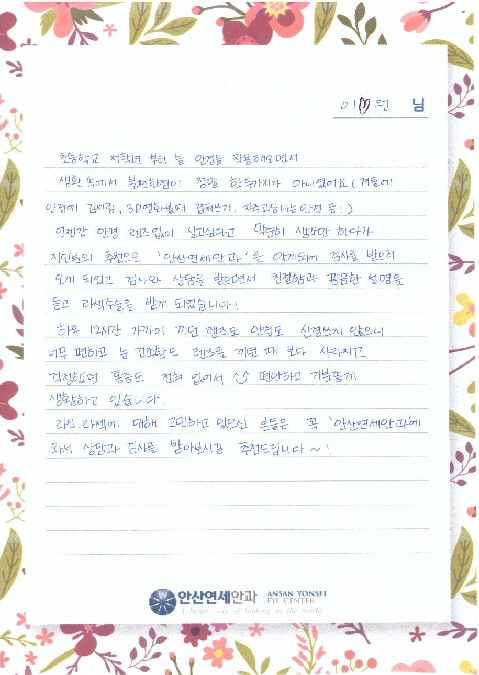 이♡원 님
초등학교 저학년 부터 늘 안경을 착용해오면서
생활 속에서 불편한점이 정말 한두가지가 아니었어요 (겨울에
안경에 김서림, 3D영화볼때 겹쳐쓰기, 자주고장나는안경 등!)
언젠간 안경 렌즈없이 살고싶다고 막연히 생각만 하다가
지인분의 추천으로 '안산연세안과'를 알게되어 검사를 받으러
오게 되었고 검사와 상담을 받으면서 친절함과 꼼꼼한 설명을
듣고 라섹수술을 받게 되었습니다!
하루 12시간 가까이 끼던 렌즈도 안경도 신경쓰지 않으니
너무 편하고 눈 건조함도 렌즈를 끼던 때 보다 사라지고
걱정했던 통증도 전혀 없어서 편안하고 기분좋게
생활하고 있습니다.
라식, 라섹에 대해 고민하고 있으신 분들은 꼭 '안산연세안과'에
와서 상담과 검사를 받아보시길 추천드립니다~!
안산연세안과 ANSAN YONSEI
EYE CENTER
A better way of looking at the world